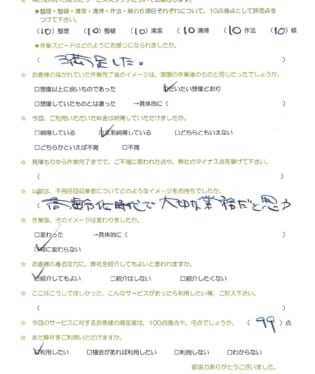 ★整理・整頓・清潔・清掃・作法・躾の6項目それぞれについて、10点満点として評価点を
つけて下さい。
(10)整理 (10)整頓 (10)清潔 (10)清掃 (10)作法 (10)躾
★作業スピードはどのようにお感じになられましたか。
( 満足した。 )
☆ お客様の描かれていた作業完了後のイメージは、実際の作業後のものと同じだったでしょうか。
□想像以上に良いものであった ☑だいたい想像どおり
□想像していたものとは違った →具体的に( )
☆ 今回、ご利用いただいた料金は納得していただけましたか。
□納得している ☑まあ納得している □どちらともいえない
□どちらかといえば不満 □不満
☆ 見積もりから作業完了までで、ご不満に思われた点や、弊社のマイナス点を挙げて下さい。
( )
☆ 以前は、不用品回収業者についてどのようなイメージをお持ちでしたか。
時代で大切な業務だと思う
☆ 作業後、そのイメージは変わりましたか。
□変わった →具体的に( )
☑特に変わらない
☆ お客様の身近な方に、弊社を紹介してもよいと思われますか。
☑紹介してもよい □紹介はしない □紹介したくない
☆ ここはこうしてほしかった、こんなサービスがあったら利用したい等、ご記入下さい。
( )
☆ 今回のサービスに対するお客様の満足度は、100点満点中、何点でしょうか。 ( 99 )点
☆ また弊社をご利用いただけますか。
☑利用したい □機会があれば利用したい □利用しない □わからない
御協力ありがとうございました。